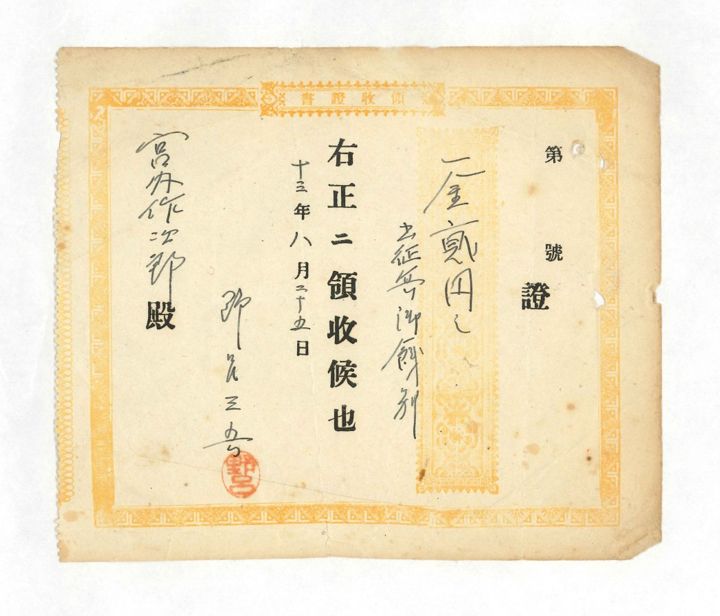 領收證書
第 號
證
一金貳円也
出征等御餞別
右正ニ領收候也
十三年八月二十五日
野呂三吾
宮内作次郎殿
野呂